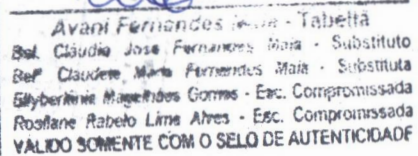 Avani Fernandes Maia - Tabeliã
Bel. Cláudio Jose Fernandes Maia - Substituto
Belª Claudete Maria Fernandes Maia - Substituta
Magalhães Gomes - Esc. Compromissada
Rosilane Rabelo Lima Alves - Esc. Compromissada
VÁLIDO SOMENTE COM O SELO DE AUTENTICIDADE